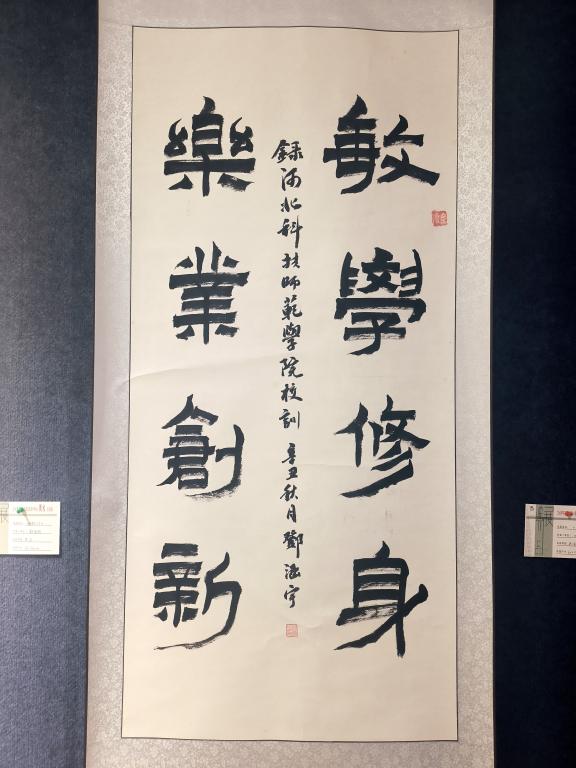 敏學修身
録河北科技師範學院校訓 辛丑秋月鄧涵宇
樂業創新